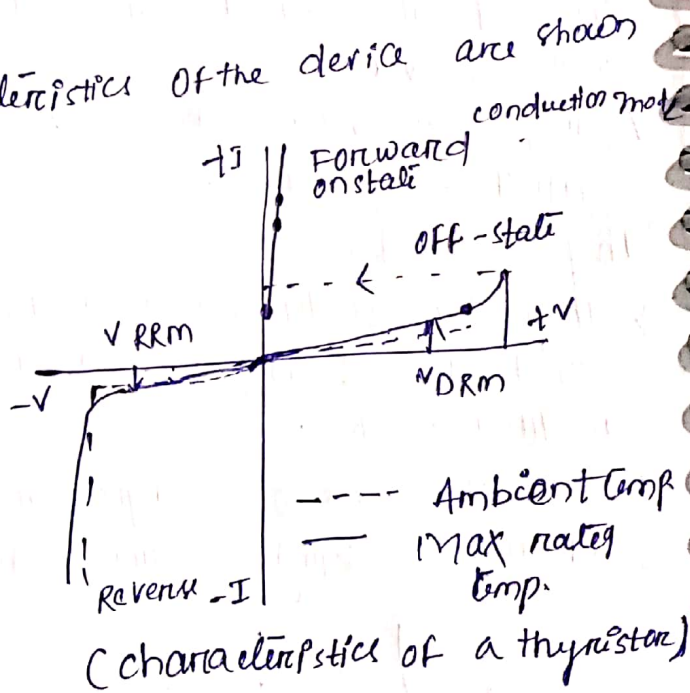 teristics Of the device are shown
conduction mod
+I Forward
onstate
OFF-state
V RRM
+V
-V
VDRM
---- Ambient temp
— Max rated
temp.
Reverse -I
(characteristics of a thyristor)